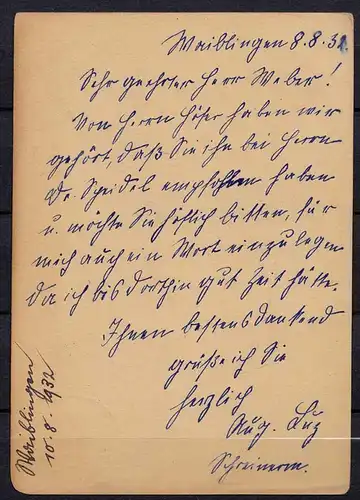 Waiblingen 8.8.32.
Sehr geehrter Herr Weber!
Von Herrn Höfer haben wir
gehört, daß Sie ihn bei Herrn
Dr. Speidel empfohlen haben
u. möchte Sie höflich bitten, für
mich auch ein Wort einzulegen
da ich bis dorthin gut Zeit hätte.
Ihnen bestens dankend
grüße ich Sie
herzlich
Aug.
Schreinerm.
Waiblingen
10.8.1932